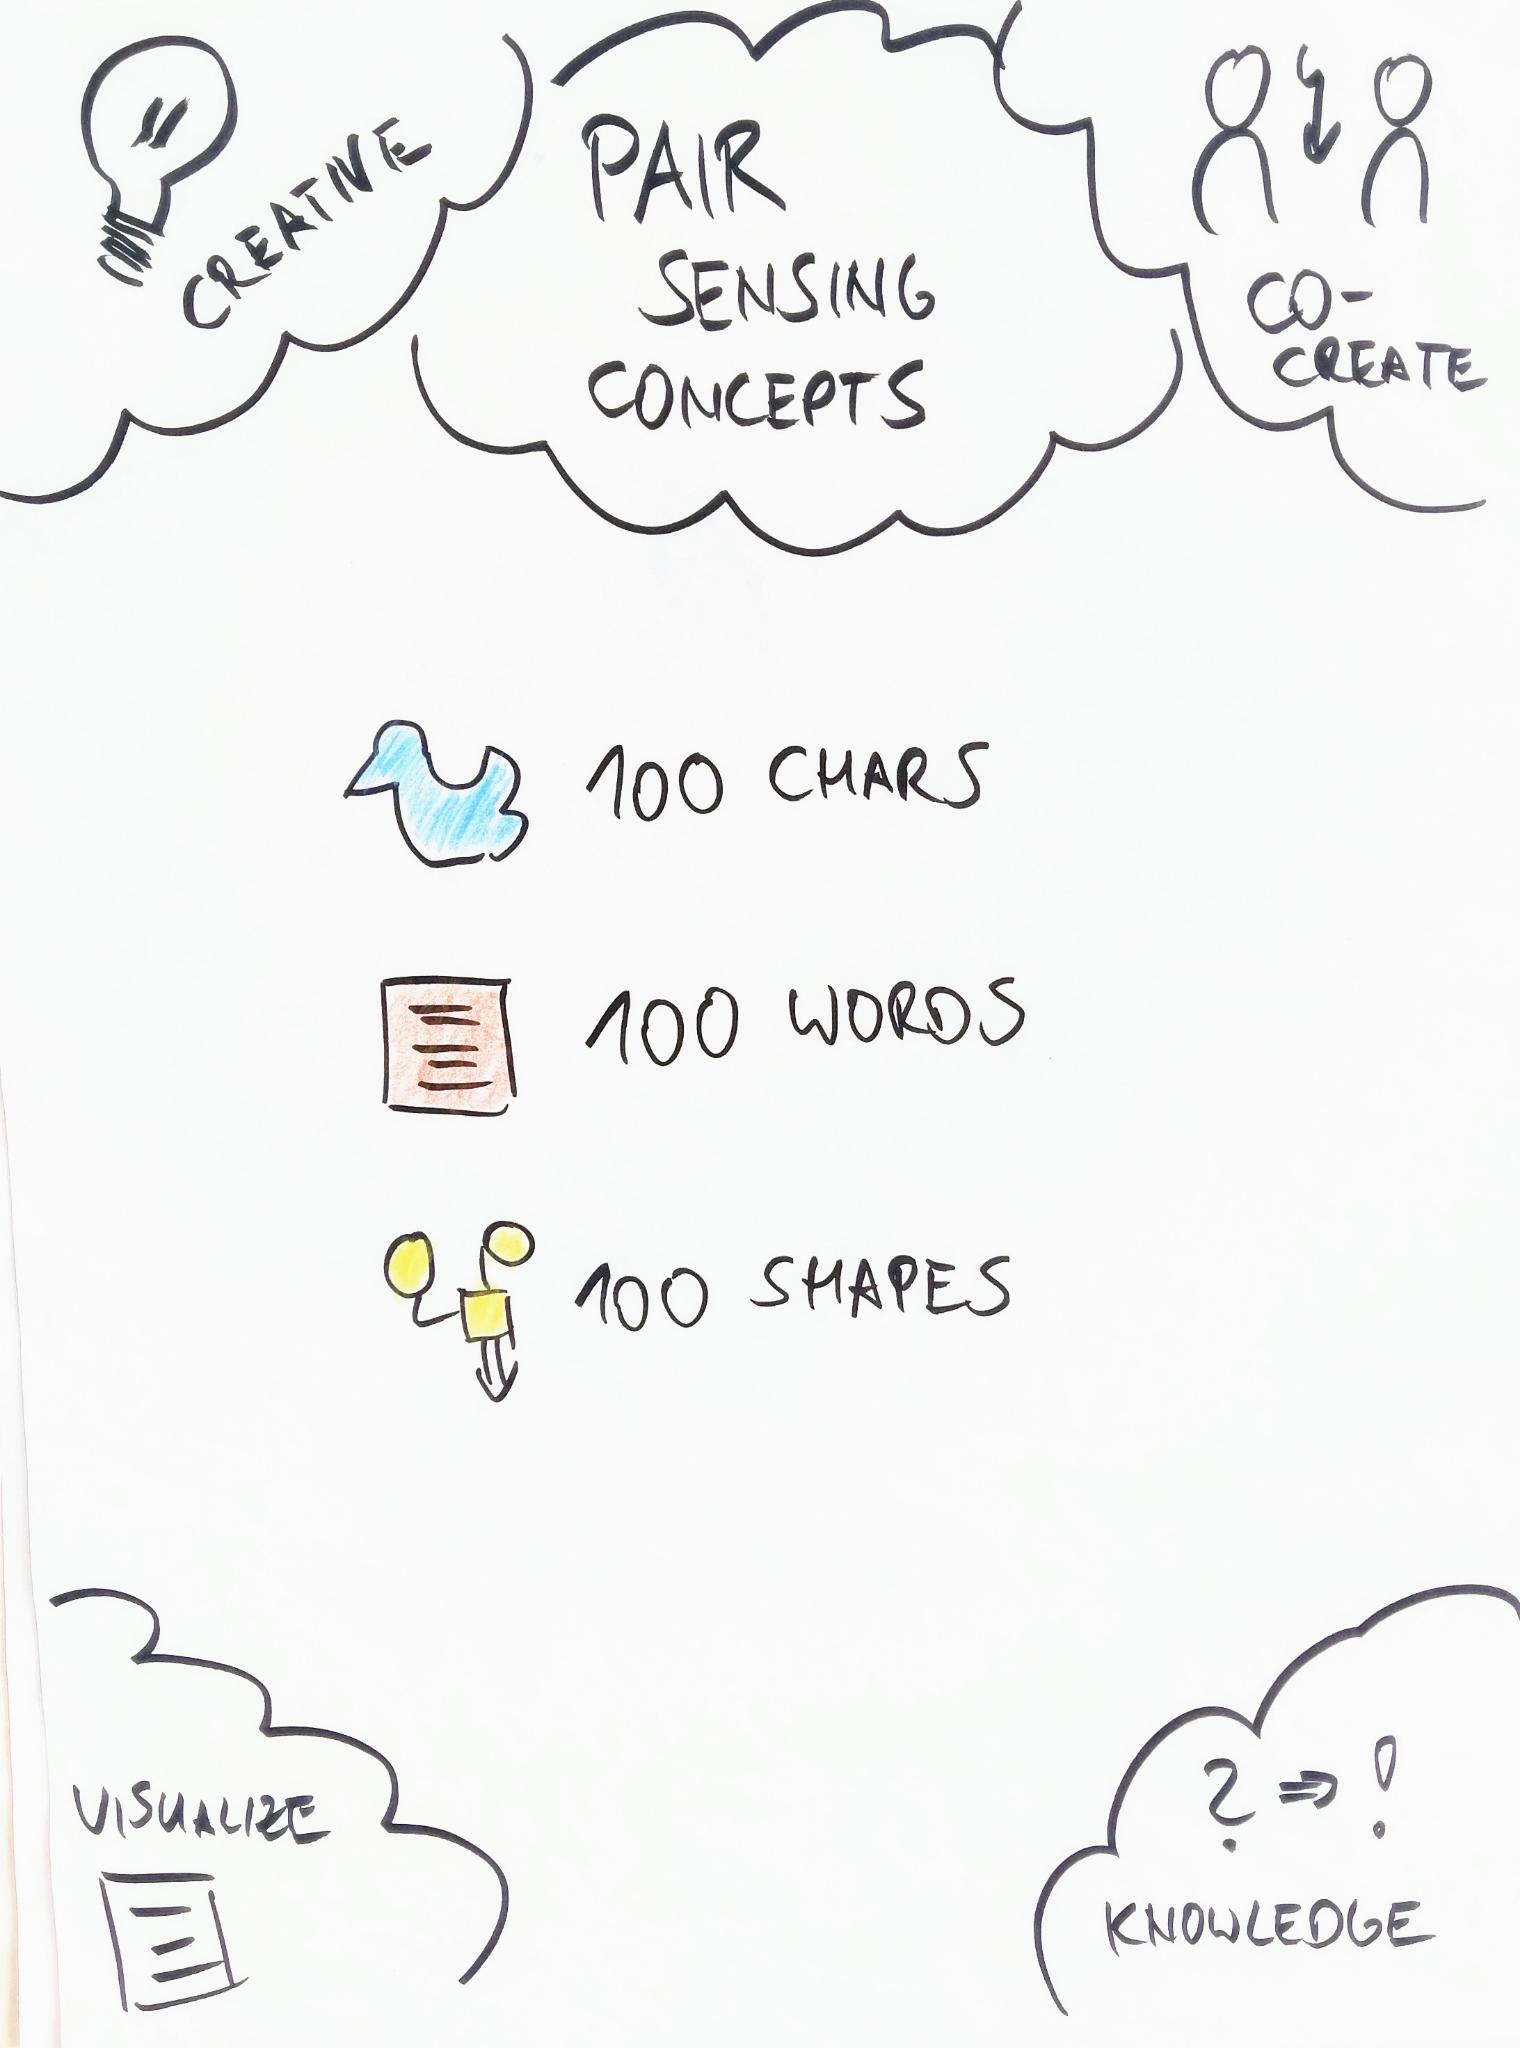 CREATIVE
PAIR
SENSING
CONCEPTS
CO-
CREATE
100 CHARS
100 WORDS
100 SHAPES
VISUALIZE
? ⇒ !
KNOWLEDGE